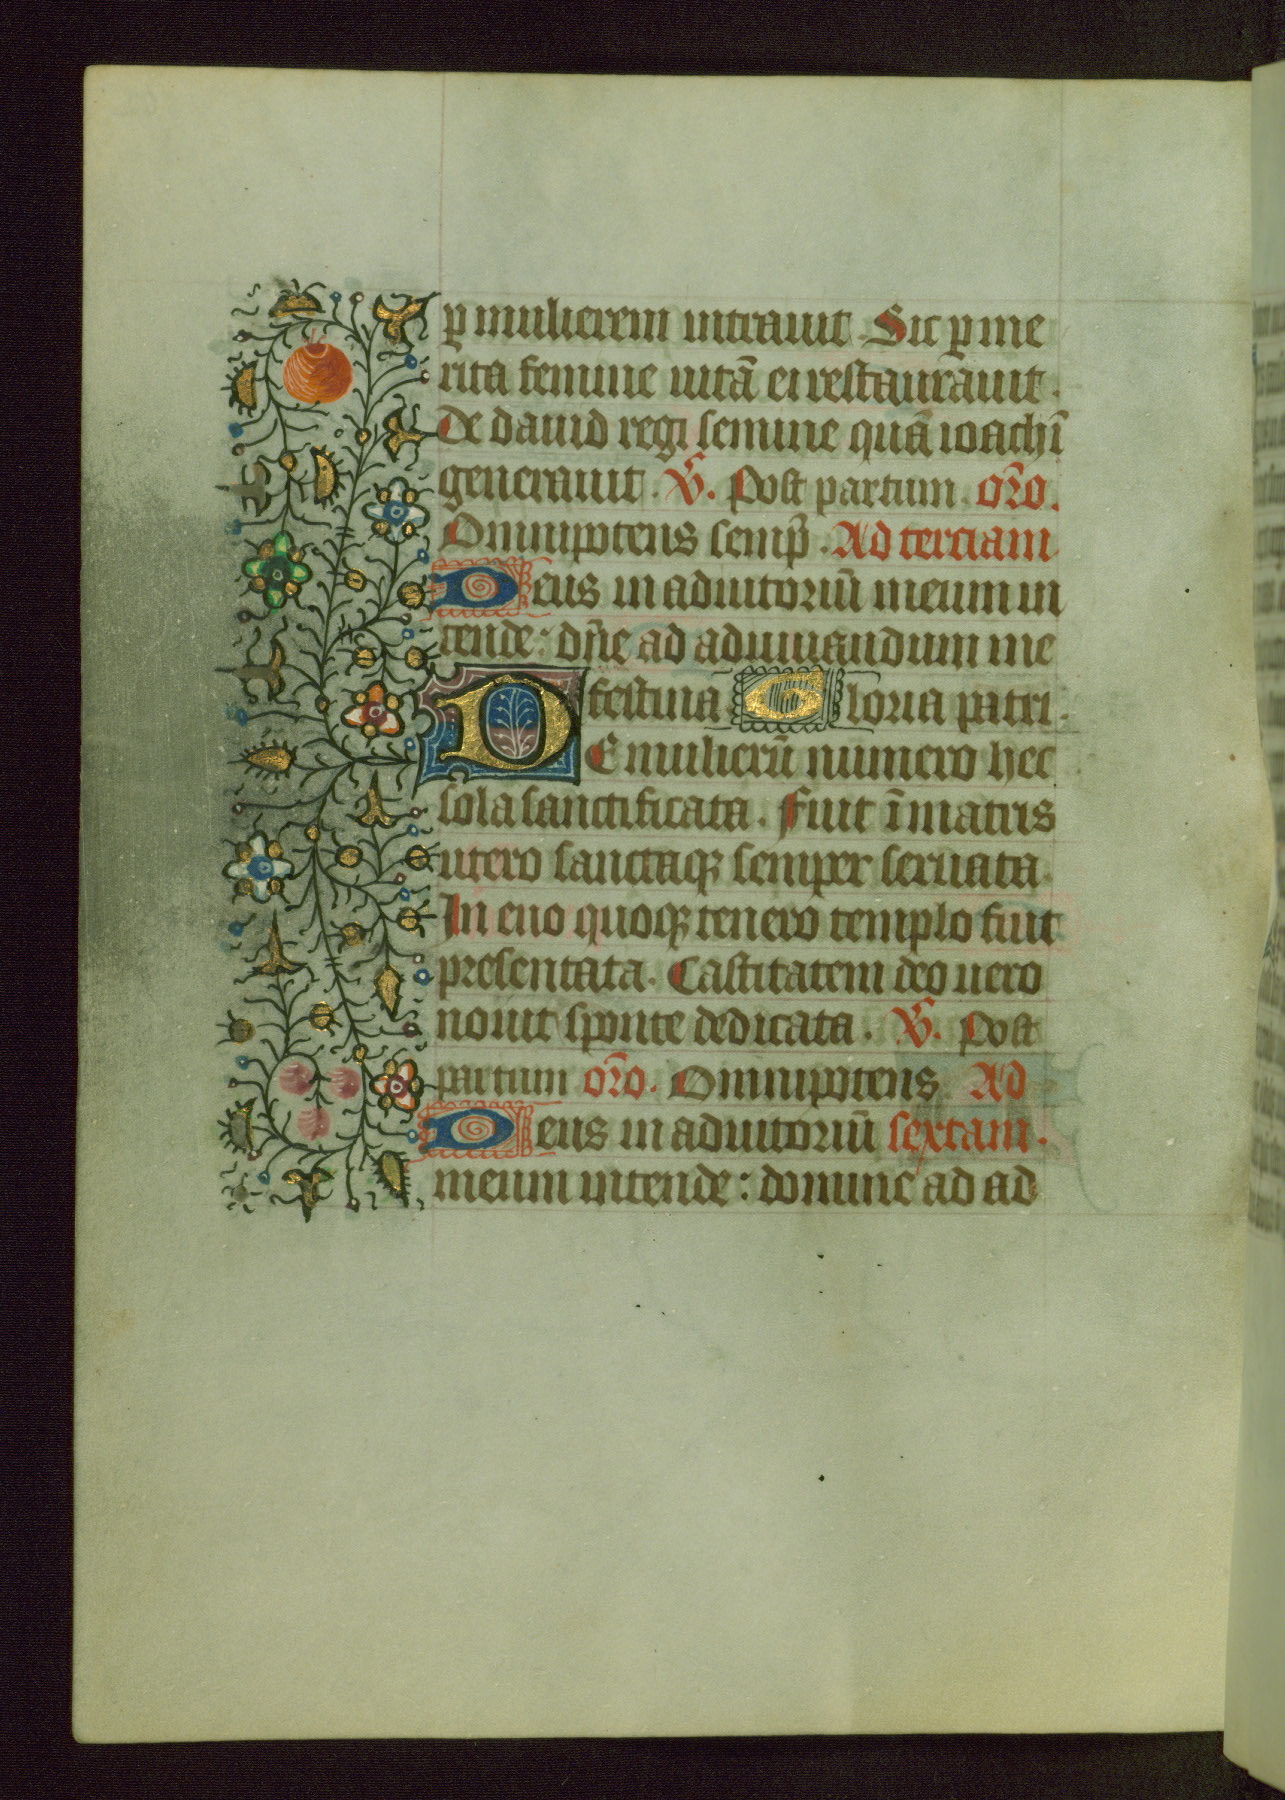 p̱ mulierem intrauit. Sic p̱ me
rita femine uitā ei restaurauit.
De dauid regi semine quā ioachī
generauit. v̄. Post partum. or̄o.
Omnipotens semp̄. Ad terciam
Deus in adiutoriū meum in
tende: dn̄e ad adiuuandum me
festina Gloria patri.
De mulierū numero hec
sola sanctificata. Fuit ī matris
utero sanctaqꝫ semper seruata.
In euo quoqꝫ tenero templo fuit
presentata. Castitatem deo uero
nouit sponte dedicata. v̄. Post
partum or̄o. Omnipotens. Ad
Deus in adiutoriū sextam.
meum intende: domine ad ad